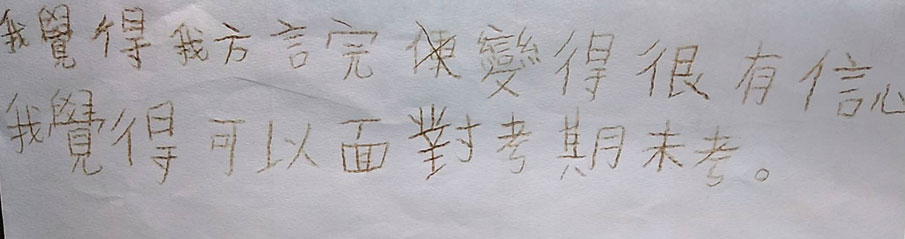 我覺得我方言完使變得很有信心
我覺得可以面對考期未考。